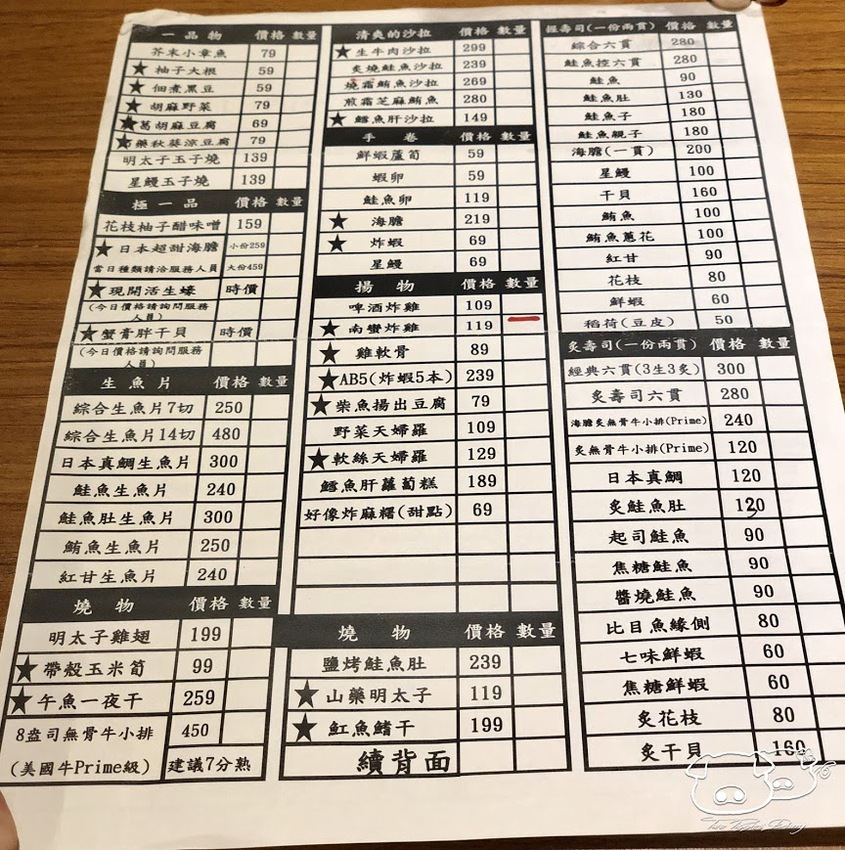 一品物 價格 數量
芥末小章魚 79
★ 柚子大根 59
★ 佃煮黑豆 59
★ 胡麻野菜 79
★ 葛胡麻豆腐 69
★ 藥秋葵涼豆腐 79
明太子玉子燒 139
星鰻玉子燒 139
極一品 價格 數量
花枝柚子醋味噌 159
★ 日本超甜海膽 小份259
當日種類請洽服務人員 大份459
★ 現開活生蠔 時價
(今日價格請詢問服務
人員)
★ 蟹膏胖干貝 時價
(今日價格請詢問服務
人員)
生魚片 價格 數量
綜合生魚片7切 250
綜合生魚片14切 480
日本真鯛生魚片 300
鮭魚生魚片 240
鮭魚肚生魚片 300
鮪魚生魚片 250
紅甘生魚片 240
燒物 價格 數量
明太子雞翅 199
★ 帶殼玉米筍 99
★ 午魚一夜干 259
8盎司無骨牛小排 450
(美國牛Prime級) 建議7分熟
清爽的沙拉 價格 數量
★ 生牛肉沙拉 299
炙燒鮭魚沙拉 239
燒霜鮪魚沙拉 269
煎霜芝麻鮪魚 280
★ 鱈魚肝沙拉 149
手卷 價格 數量
鮮蝦蘆筍 59
蝦卵 59
鮭魚卵 119
★ 海膽 219
★ 炸蝦 69
星鰻 69
揚物 價格 數量
啤酒炸雞 109
★ 南蠻炸雞 119
★ 雞軟骨 89
★ AB5(炸蝦5本) 239
★ 柴魚揚出豆腐 79
野菜天婦羅 109
★ 軟絲天婦羅 129
鱈魚肝蘿蔔糕 189
好像炸麻糬(甜點) 69
燒物 價格 數量
鹽烤鮭魚肚 239
★ 山藥明太子 119
★ 魟魚鰭干 199
續背面
握壽司(一份兩貫) 價格 數量
綜合六貫 280
鮭魚控六貫 280
鮭魚 90
鮭魚肚 130
鮭魚子 180
鮭魚親子 180
海膽(一貫) 200
星鰻 100
干貝 160
鮪魚 100
鮪魚蔥花 100
紅甘 90
花枝 80
鮮蝦 60
稻荷(豆皮) 50
炙壽司(一份兩貫) 價格 數量
經典六貫(3生3炙) 300
炙壽司六貫 280
海膽炙無骨牛小排(Prime) 240
炙無骨牛小排(Prime) 120
日本真鯛 120
炙鮭魚肚 120
起司鮭魚 90
焦糖鮭魚 90
醬燒鮭魚 90
比目魚緣側 80
七味鮮蝦 60
焦糖鮮蝦 60
炙花枝 80
炙干貝 160